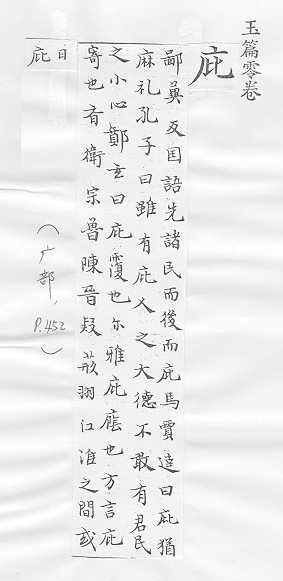 玉篇零卷
庇
鄙冀反国語先諸民而後而庇焉賈逵曰庇猶
麻礼孔子曰雖有庇人之大德不敢有君民
之小心鄭玄曰庇覆也尓雅庇廕也方言庇
寄也齐衛宗魯陳晉江淮之間或
曰庇
（广部，P.452）